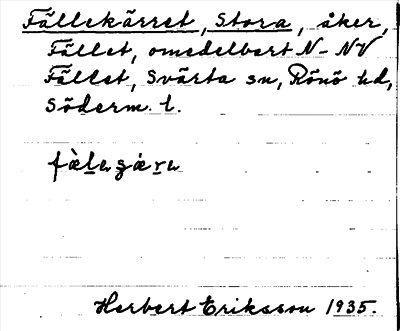 Fällekärret, Stora, åker,
Fället, omedelbart N-NV
Fället, Svärta sn, Rönö hd,
Söderm. l.
Herbert Eriksson 1935.